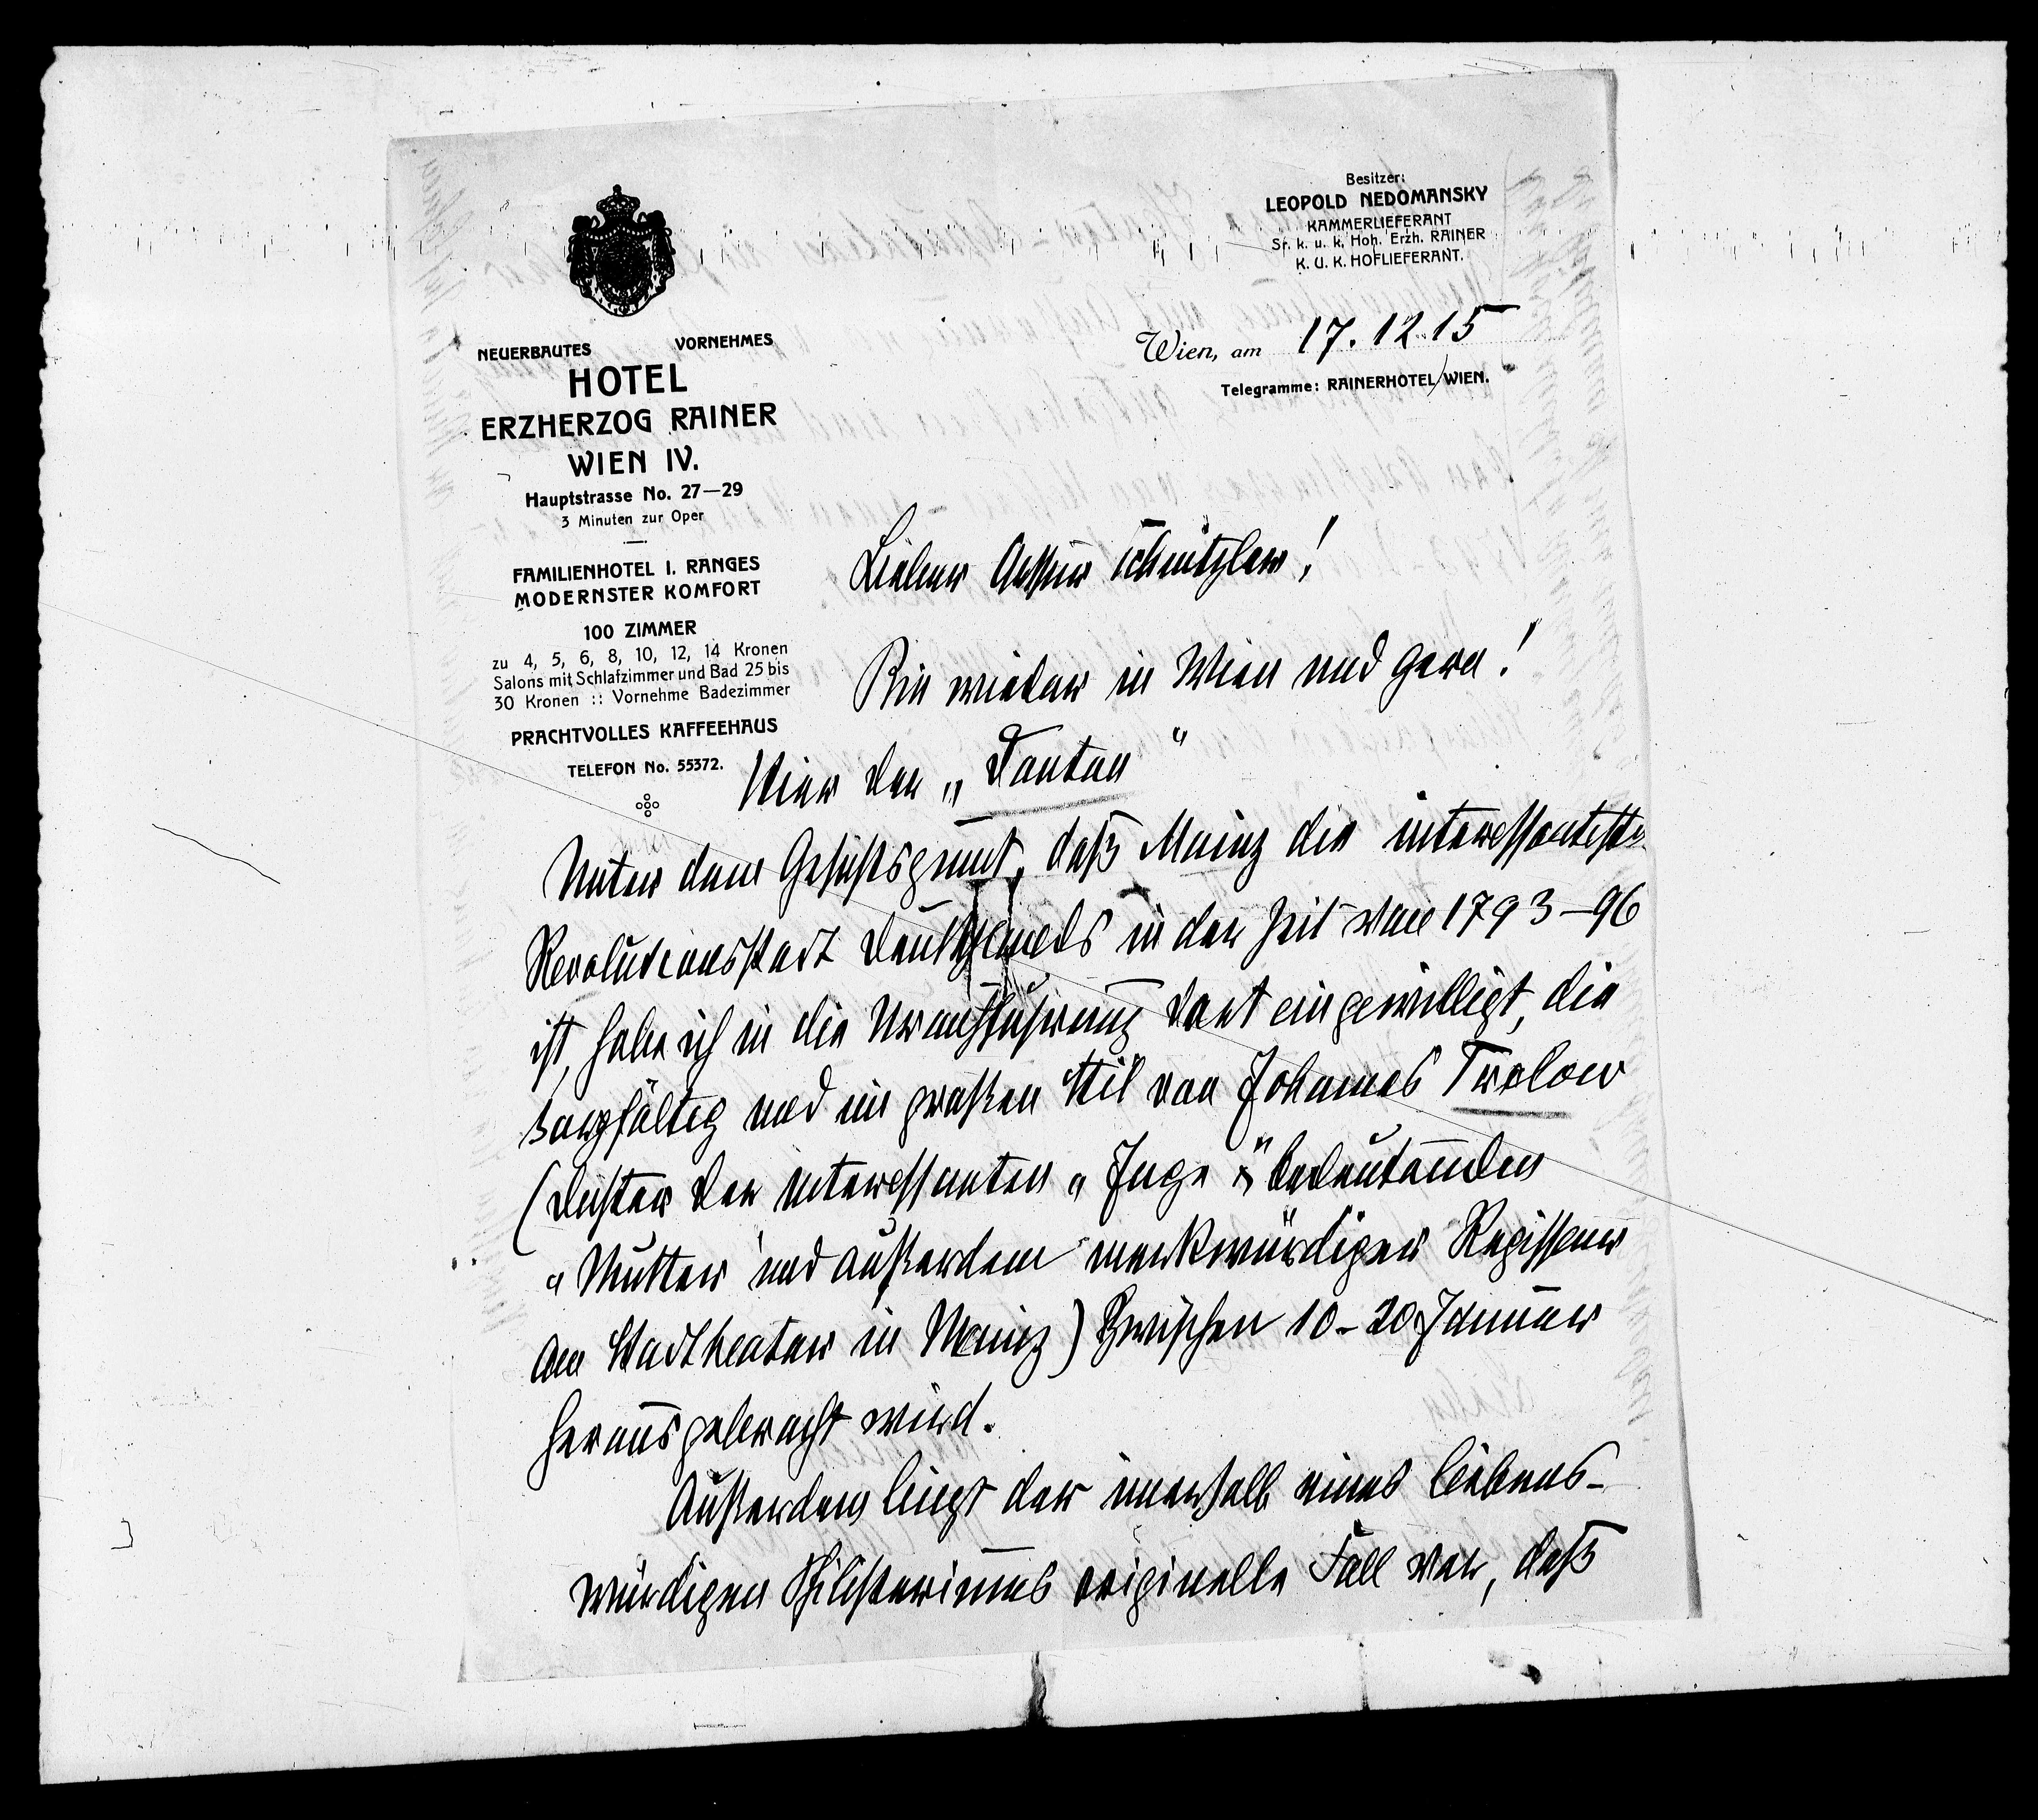 Besitzer:
LEOPOLD NEDOMANSKY
KAMMERLIEFERANT
Sr. k. u. k. Hoh. Erzh. RAINER
K. U. K. HOFLIEFERANT.
NEUERBAUTES VORNEHMES
HOTEL
ERZHERZOG RAINER
WIEN IV.
Hauptstrasse No. 27—29
3 Minuten zur Oper
FAMILIENHOTEL I. RANGES
MODERNSTER KOMFORT
100 ZIMMER
zu 4, 5, 6, 8, 10, 12, 14 Kronen
Salons mit Schlafzimmer und Bad 25 bis
30 Kronen :: Vornehme Badezimmer
PRACHTVOLLES KAFFEEHAUS
TELEFON No. 55372.
Wien, am 17. 12 15
Telegramme: RAINERHOTEL WIEN.
Lieber Arthur Schnitzler!
Bin wieder in Wien und gern!
Hier der „Danton“
Unter dem Gesichtspunkt, daß Mainz die interessanteste
Revolutionsstadt Deutschlands in der Zeit von 1793–96
ist, habe ich in die Uraufführung dort eingewilligt, die
sorgfältig und im großen Stil von Johannes Tralow
(Dichter der interessanten „Inge“ & bedeutenden
„Mutter“ und außerdem merkwürdiger Regisseur
am Stadttheater in Mainz) zwischen 10–20 Januar
herausgebracht wird.
Außerdem liegt der innerhalb eines liebens-
würdigen Philisteriums originelle Fall vor, daß